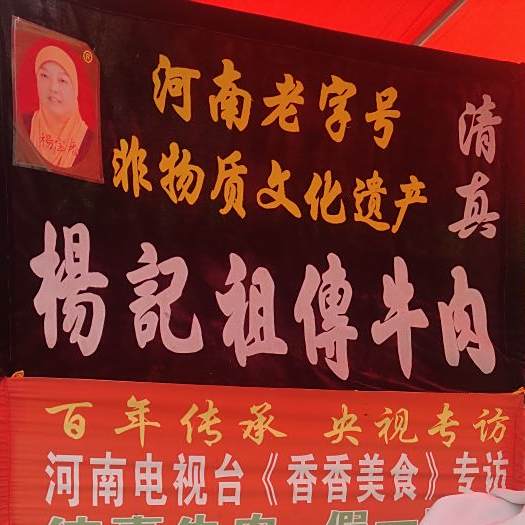 河南老字号
非物质文化遗产
清真
楊記祖傳牛肉
百年传承 央视专访
河南电视台《香香美食》专访